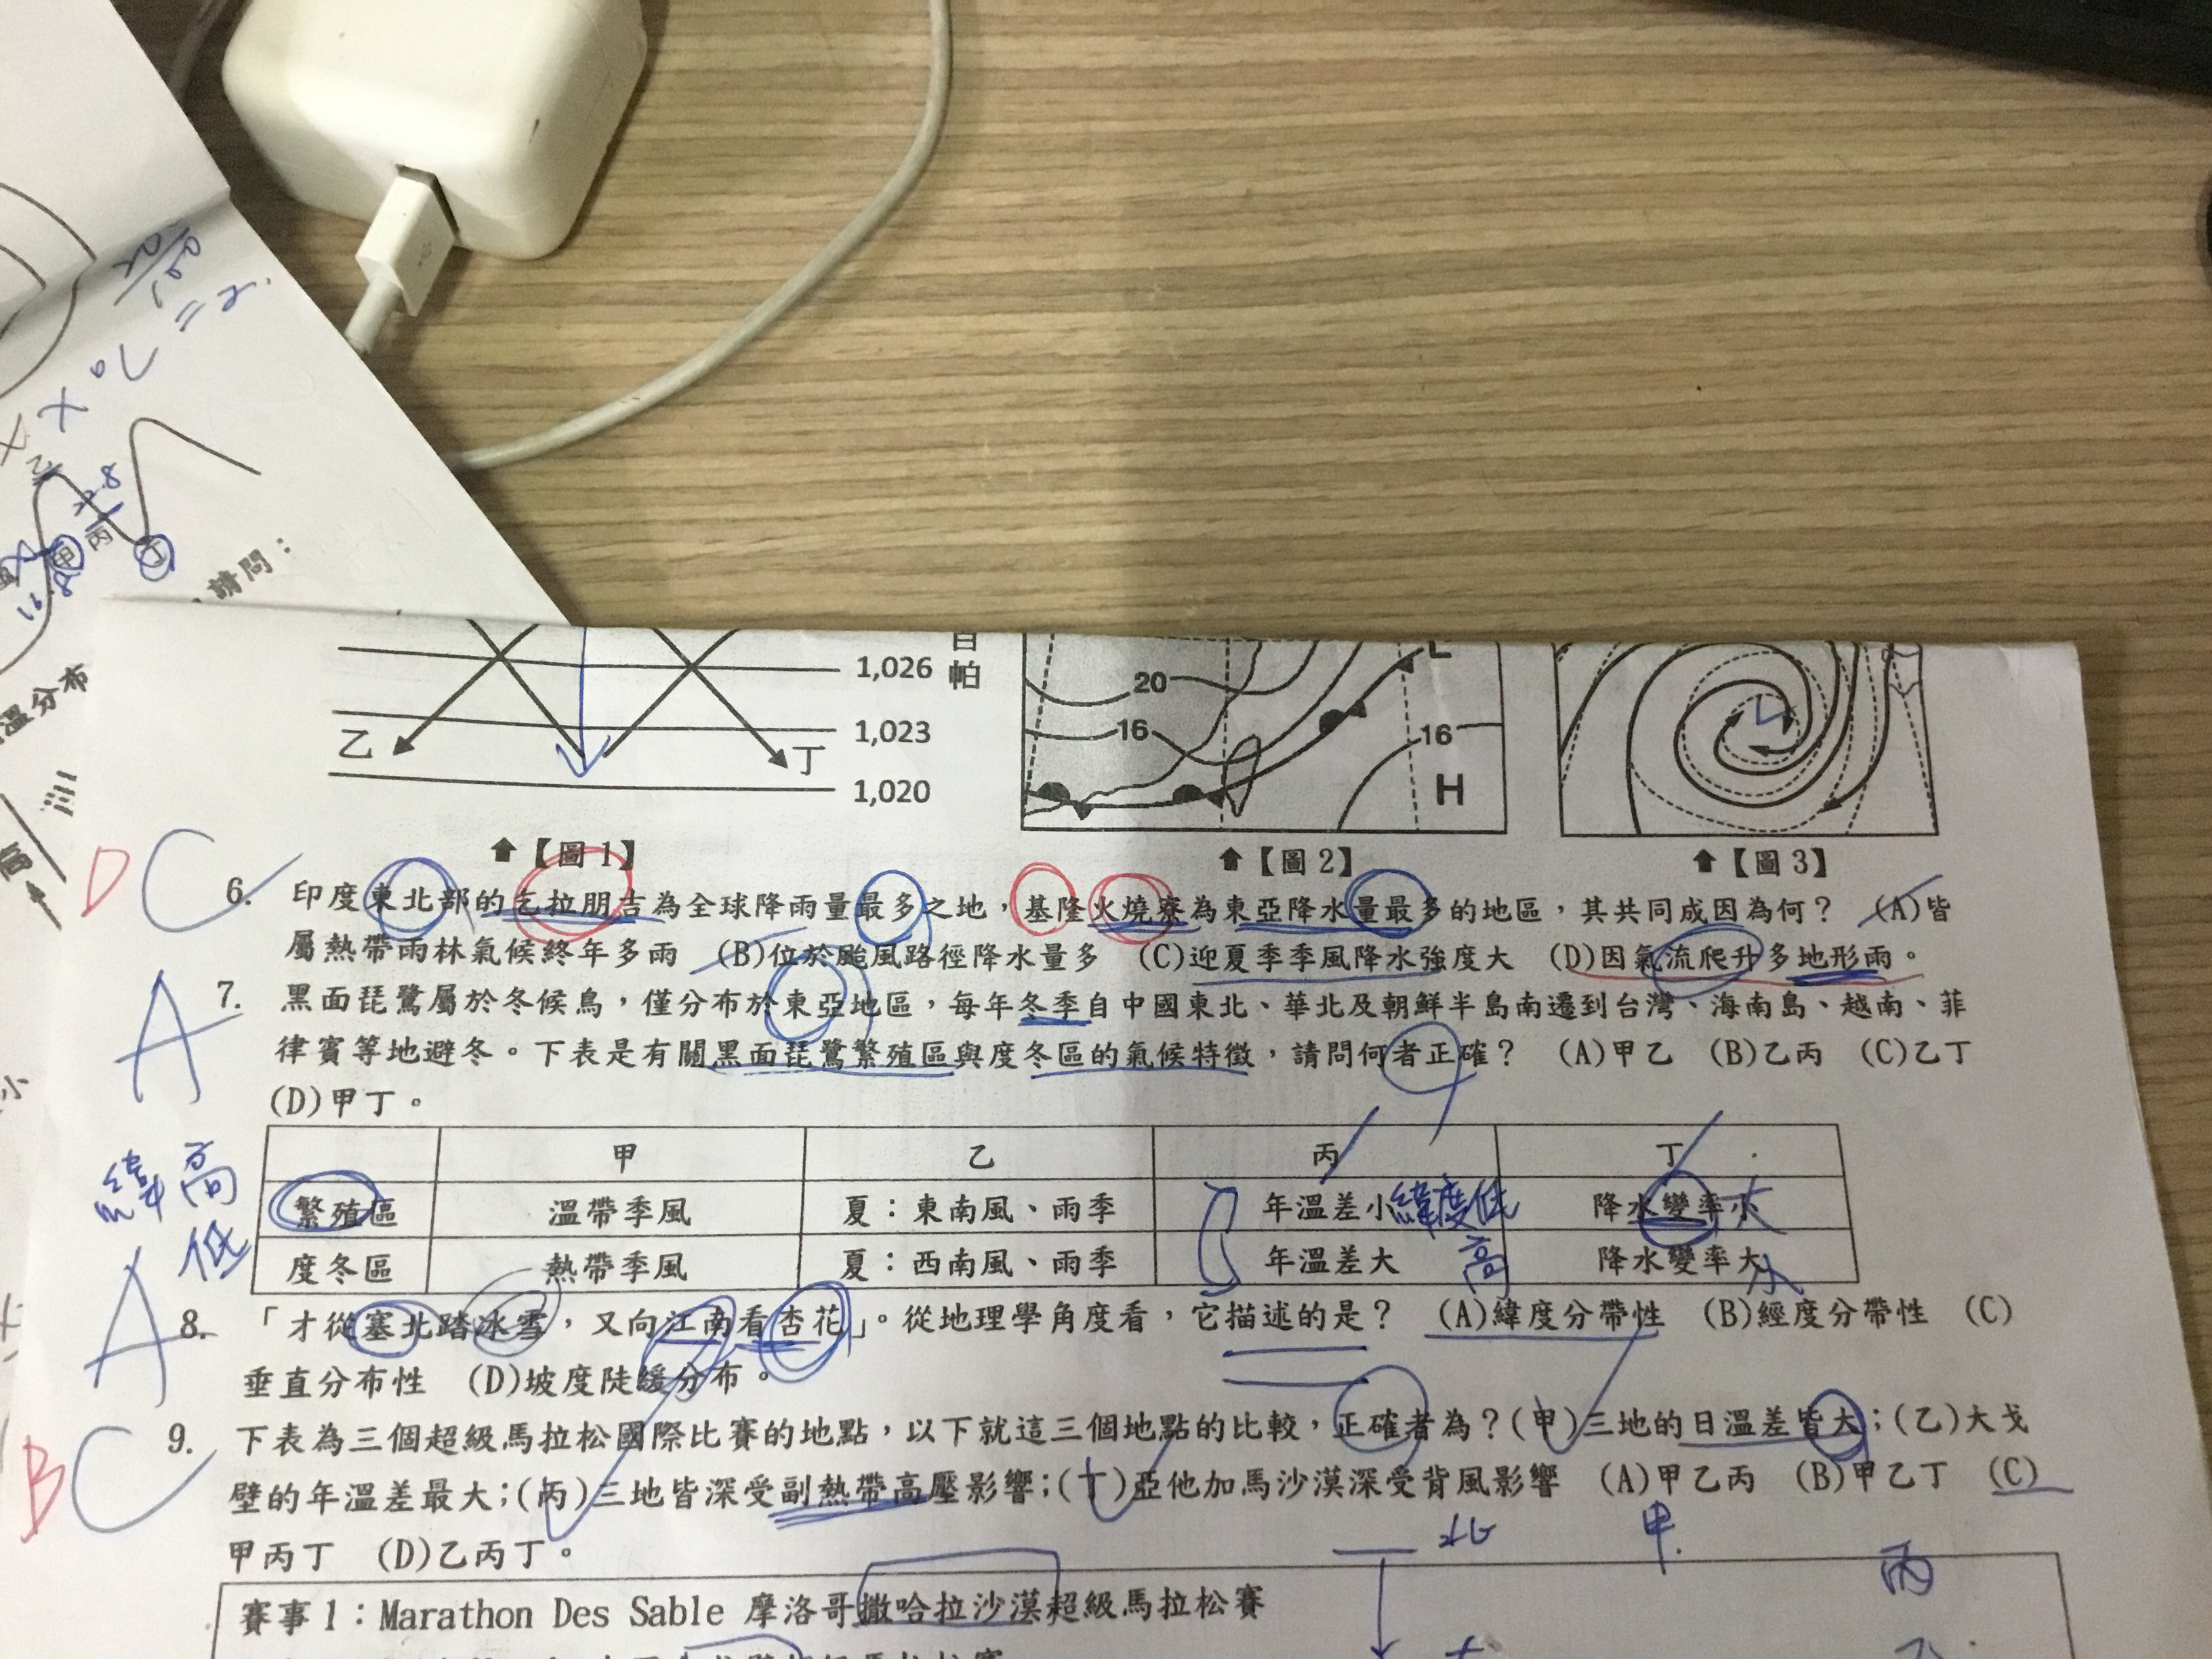 20/100 = 2.
X X °C
乙
2.8
甲 丙 丁
16.8
，請問：
溫分布
三
高
小
1,026
百帕
1,023
乙
丁
1,020
【圖1】
20
16
L
16
H
【圖2】
L
【圖3】
D C
6. 印度東北部的乞拉朋吉為全球降雨量最多之地，基隆火燒寮為東亞降水量最多的地區，其共同成因為何？ (A)皆
屬熱帶雨林氣候終年多雨 (B)位於颱風路徑降水量多 (C)迎夏季季風降水強度大 (D)因氣流爬升多地形雨。
A
7. 黑面琵鷺屬於冬候鳥，僅分布於東亞地區，每年冬季自中國東北、華北及朝鮮半島南遷到台灣、海南島、越南、菲
律賓等地避冬。下表是有關黑面琵鷺繁殖區與度冬區的氣候特徵，請問何者正確？ (A)甲乙 (B)乙丙 (C)乙丁
(D)甲丁。
甲 乙 丙 丁
緯 高
繁殖區 溫帶季風 夏：東南風、雨季 年溫差小 緯度低 降水變率小 大
低
度冬區 熱帶季風 夏：西南風、雨季 年溫差大 高 降水變率大 小
A
8. 「才從塞北踏冰雪，又向江南看杏花」。從地理學角度看，它描述的是？ (A)緯度分帶性 (B)經度分帶性 (C)
垂直分布性 (D)坡度陡緩分布。
B C
9. 下表為三個超級馬拉松國際比賽的地點，以下就這三個地點的比較，正確者為？(甲)三地的日溫差皆大；(乙)大戈
壁的年溫差最大；(丙)三地皆深受副熱帶高壓影響；(丁)亞他加馬沙漠深受背風影響 (A)甲乙丙 (B)甲乙丁 (C)
甲丙丁 (D)乙丙丁。
北 甲. 丙
賽事1：Marathon Des Sable 摩洛哥撒哈拉沙漠超級馬拉松賽